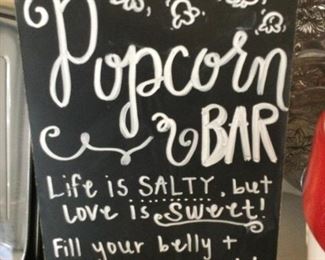 Popcorn
BAR
Life is SALTY, but
Love is Sweet!
Fill your belly +